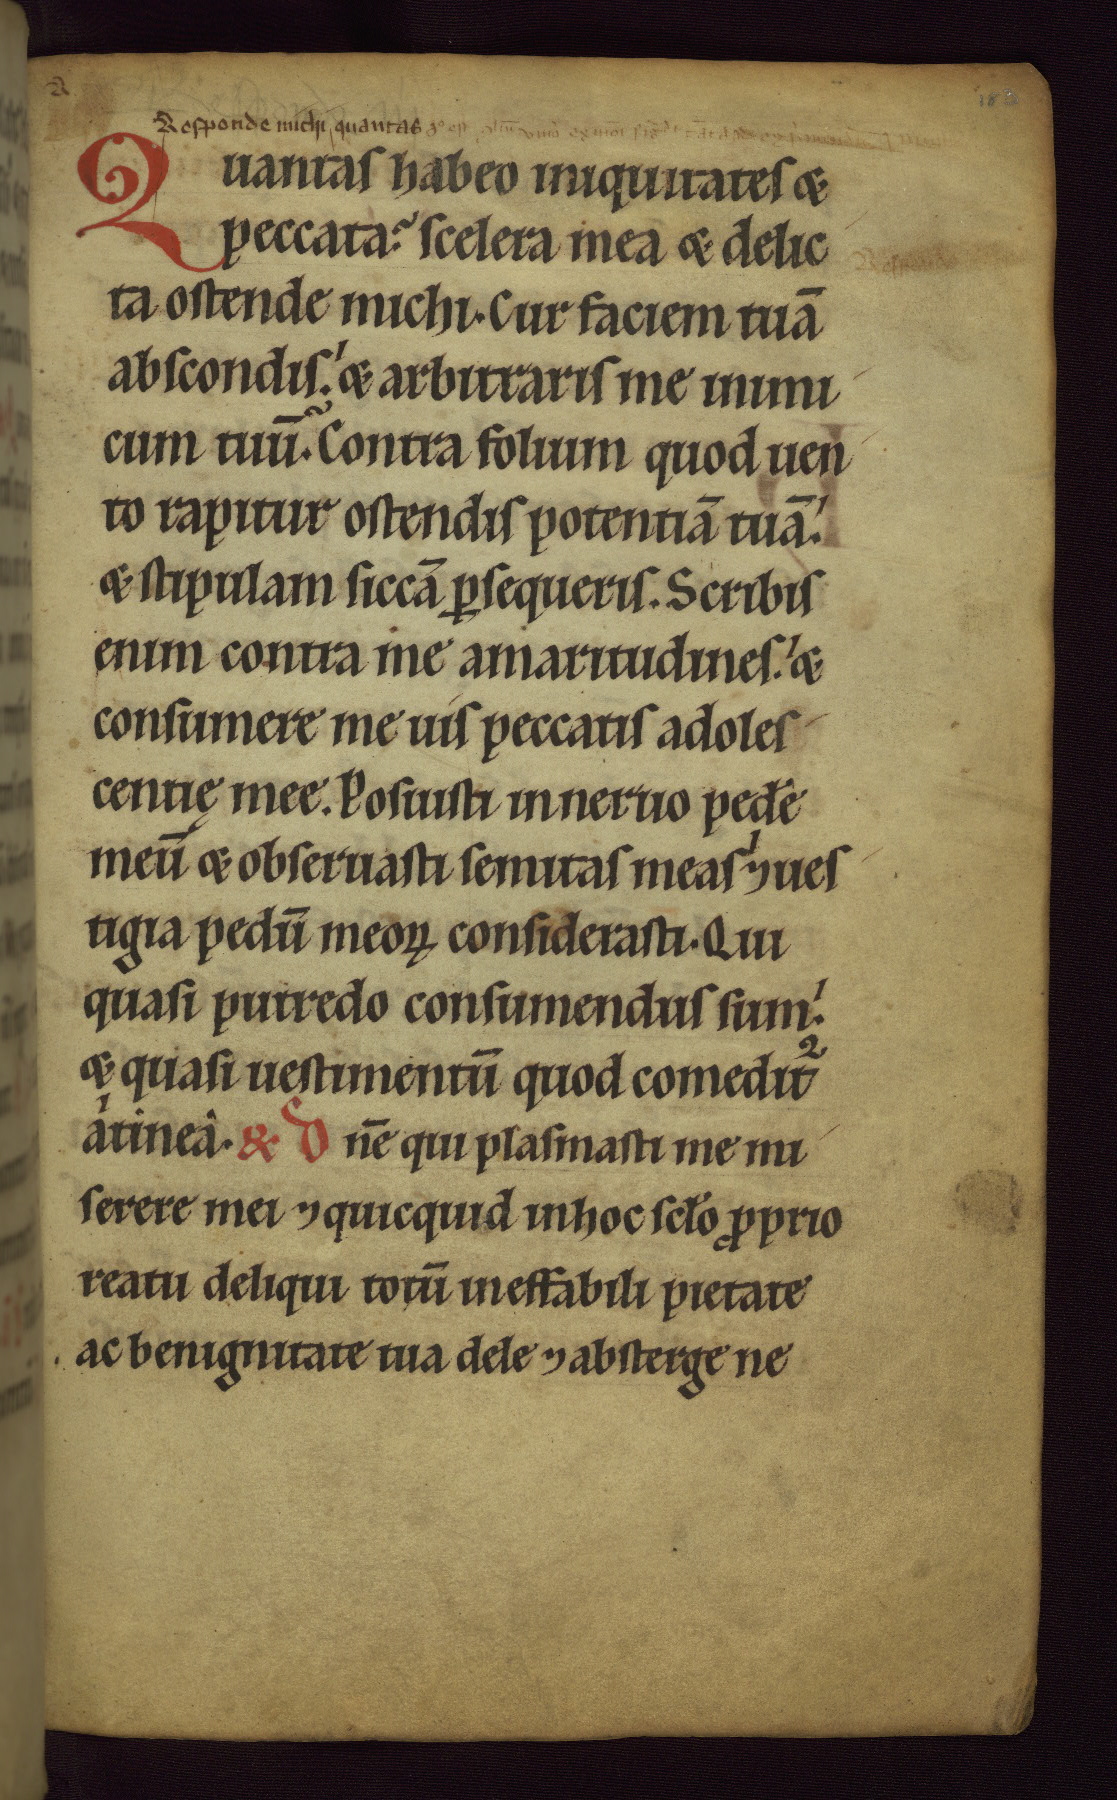 Responde michi quantas
Quantas habeo iniquitates &
peccata? scelera mea & delic
ta ostende michi. Cur faciem tuā
abscondis: & arbitraris me inimi
cum tuū? Contra folium quod uen
to rapitur ostendis potentiā tuā:
& stipulam siccā ꝑsequeris. Scribis
enim contra me amaritudines: &
consumere me uis peccatis adoles
centię mee. Posuisti in neruo pedē
meū & obseruasti semitas meas ⁊ ues
tigia pedū meoꝝ considerasti. Qui
quasi putredo consumendus sum:
& quasi uestimentū quod comedit᷑
a tinea. & Dn̄e qui plasmasti me mi
serere mei ⁊ quicquid in hoc scło ꝓprio
reatu deliqui totū ineffabili pietate
ac benignitate tua dele ⁊ absterge ne